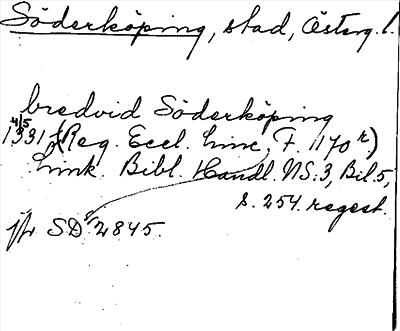 Söderköping, stad, Österg. l.
bredvid Söderköping
4/5
1331 (Reg. Eccl. Linc, F. 1170 r)
Link. Bibl. Handl. NS:3, Bil. 5,
s. 254. regest.
jfr SD 2845.